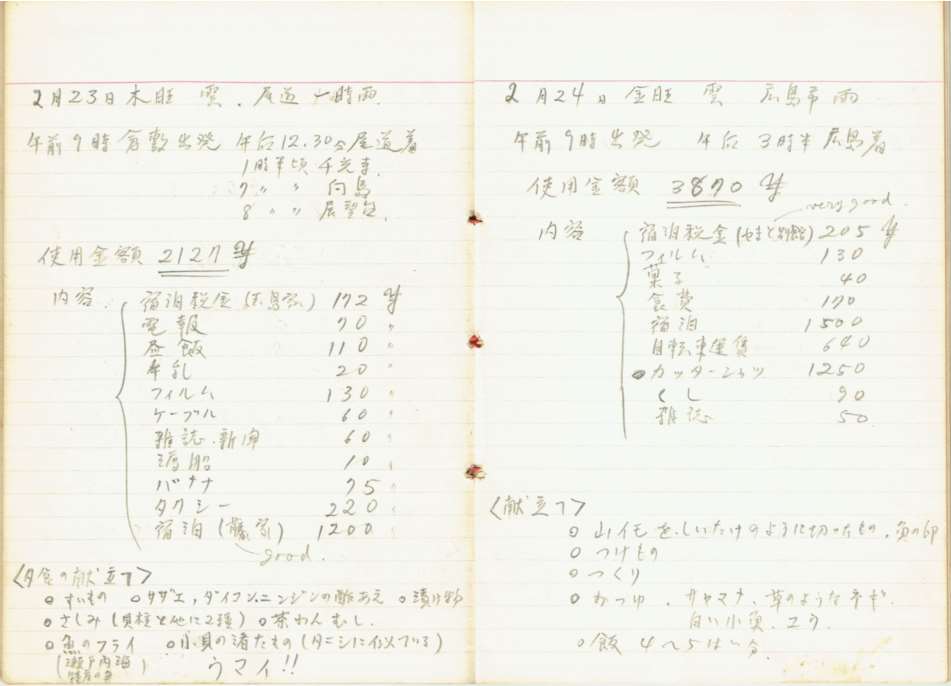 2月23日 木旺 雲. 尾道 一時雨.
午前9時 倉敷出発 午后12.30分 尾道着
1時半頃 千光寺.
7 〃 〃 向島
8 〃 〃 展望台.
使用金額 2127 ¥
内容. 宿泊税金 ( ) 172 ¥
電報 70 〃
昼飯 110 〃
牛乳 20 〃
フィルム 130 〃
ケーブル 60 〃
雑誌.新聞 60 〃
渡船 10 〃
バナナ 75 〃
タクシー 220 〃
宿泊 ( ) 1200 〃
good.
<夕食の献立て>
○すいもの ○サザエ,ダイコン,ニンジンの酢あえ ○漬け物
○さしみ(貝柱と他に2種) ○茶わんむし.
○魚のフライ ○小貝の煮たもの(タニシに似ている)
(瀬戸内海 の魚) ウマイ!!
2月24日 金旺 雲 広島市 雨
午前9時出発 午后 3時半 広島着
使用金額 3870 ¥
very good.
内容 宿泊税金(やまと別館) 205 ¥
フィルム 130
菓子 40
食費 170
宿泊 1500
自転車運賃 640
●カッターシャツ 1250
くし 90
雑誌 50
<献立て>
○山イモをしいたけのように切ったもの.魚の卵
○つけもの
○つくり
○おつゆ . 草のようなネギ.
白い小魚.ユリ.
○飯 4〜5はい分.